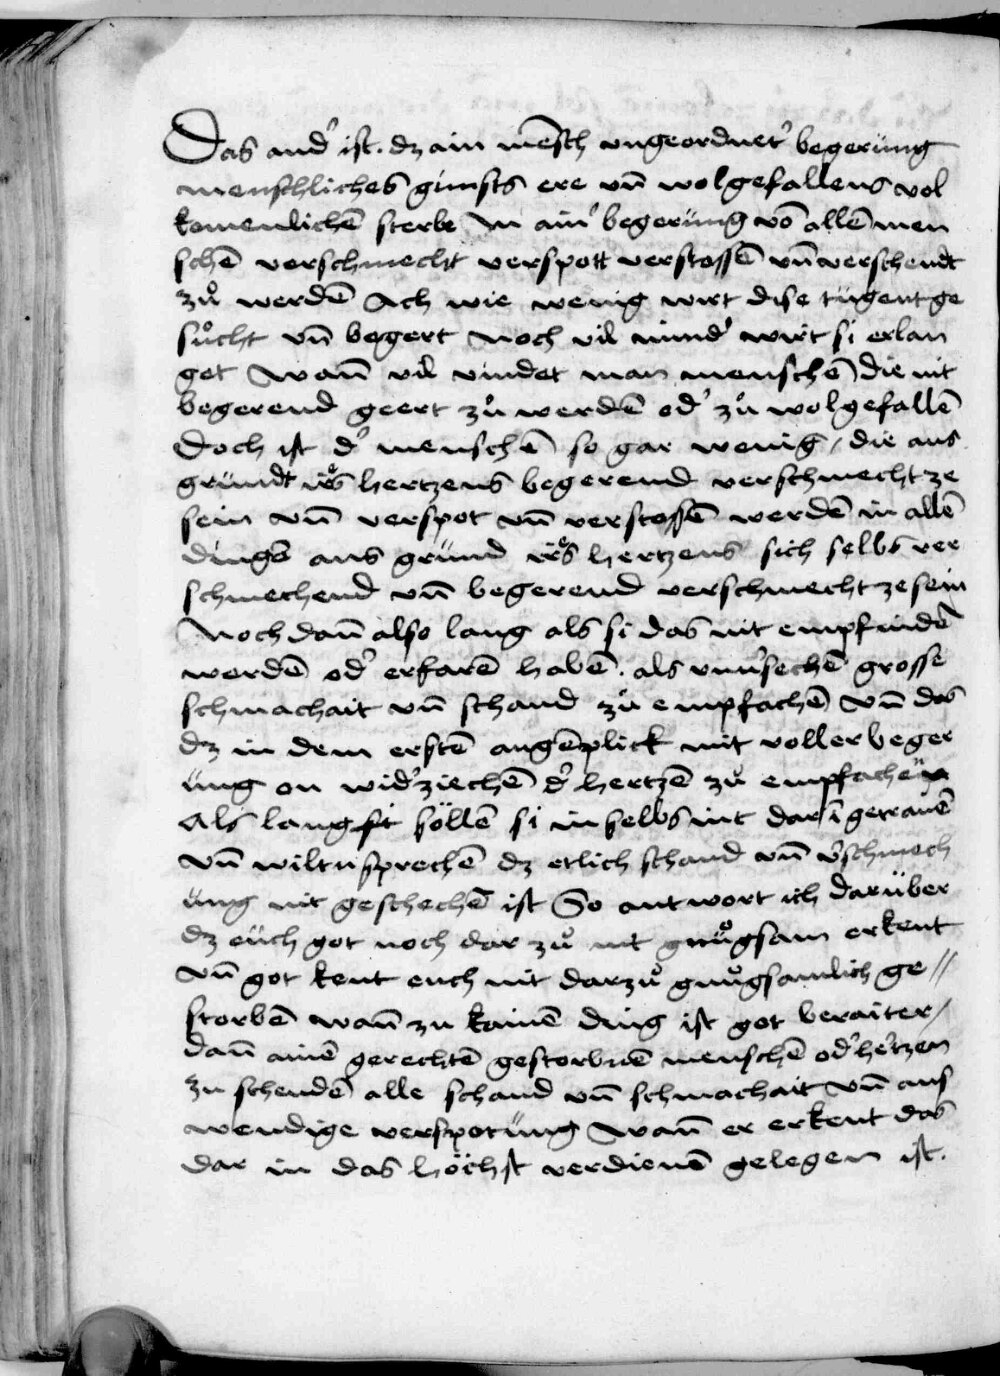 Das and' ist. dz ain mēsch vngeordnet' begerung
menschliches gunsts ere vn̄ wolgefallens vol
komenlichē sterbe In ain' begerung vō allē men
schē verschmecht verspott verstossē vn̄ verschendt
zů werdē Ach wie wenig wirt dise tugent ge
sůcht vn̄ begert Noch vil mind' wirt si erlan
get Wann̄ vil vindet man menschē die nit
begerend geert zů werdē od' zů wolgefallē
Doch ist d' menschē so gar wenig / die aus
grundt irs hertzens begerend verschmecht ze
sein vn̄ verspot vn̄ verstossē werdē in allē
dingē aus grund irs hertzens sich selbs ver
schmechend vn̄ begerend verschmecht ze sein
Noch dan̄ also lang als si das nit empfindē
werdē od' erfarē habē. als grosse
schmachait vn̄ schand zů empfachē vn̄ das
dz in dem erstē augēplick mit voller beger
ung on wid'ziechē d' hertzē zů empfachen
Als lang sōllē si in selbs nit dar ī getrauē
vn̄ wiltu sprechē dz etlich schand vn̄ v'schmech
ung nit geschechē ist So antwort ich darüber
dz eüch got noch dar zů nit gnůgsam erkent
vn̄ got kent euch nit darzů gnůgsamlich ge //
storbē wan̄ zu kainē ding ist got beraiter /
dan̄ ainē gerechtē gestorbnē menschē od' hertzen
zu schendē alle schand vn̄ schmachait vn̄ aus
wendige verspotung Wan̄ er erkent das
dar in das höchst verdienē gelegen ist.